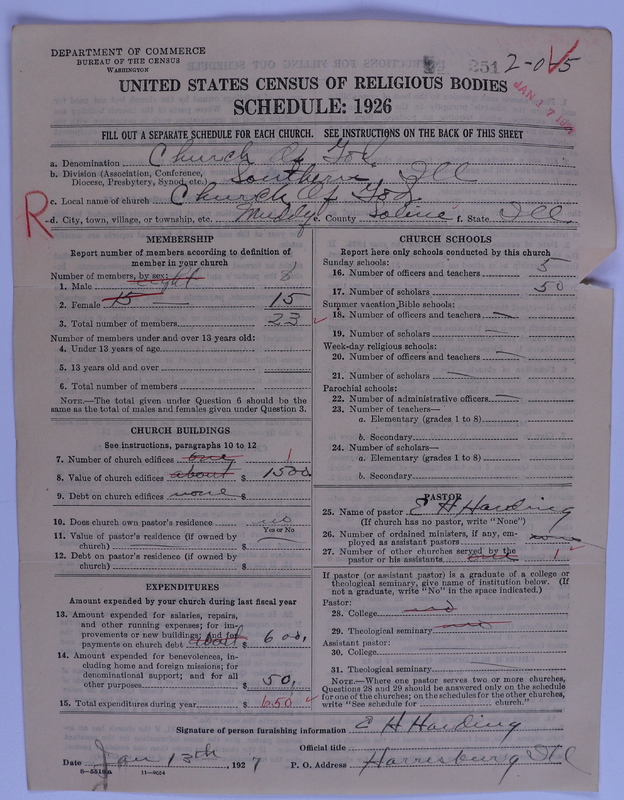 DEPARTMENT OF COMMERCE
BUREAU OF THE CENSUS
WASHINGTON
251 2-0-5
UNITED STATES CENSUS OF RELIGIOUS BODIES
JAN 17
SCHEDULE: 1926
FILL OUT A SEPARATE SCHEDULE FOR EACH CHURCH. SEE INSTRUCTIONS ON THE BACK OF THIS SHEET
a. Denomination Church Of God.
b. Division (Association, Conference, Diocese, Presbytery, Synod, etc.) Southern Ill
c. Local name of church Church Of God
R
d. City, town, village, or township, etc. Muddy e. County Saline f. State Ill
MEMBERSHIP
Report number of members according to definition of
member in your church
Number of members, by sex:
1. Male eight 8
2. Female 15 15
3. Total number of members 23
Number of members under and over 13 years old:
4. Under 13 years of age
5. 13 years old and over
6. Total number of members
NOTE.—The total given under Question 6 should be the
same as the total of males and females given under Question 3.
CHURCH BUILDINGS
See instructions, paragraphs 10 to 12
7. Number of church edifices one 1
8. Value of church edifices about $ 1500
9. Debt on church edifices none $
10. Does church own pastor's residence no
Yes or No
11. Value of pastor's residence (if owned by
church) $
12. Debt on pastor's residence (if owned by
church) $
EXPENDITURES
Amount expended by your church during last fiscal year
13. Amount expended for salaries, repairs,
and other running expenses; for im-
provements or new buildings; and for
payments on church debt about $ 600,
14. Amount expended for benevolences, in-
cluding home and foreign missions; for
denominational support; and for all
other purposes $ 50,
15. Total expenditures during year $ 650
CHURCH SCHOOLS
Report here only schools conducted by this church
Sunday schools:
16. Number of officers and teachers 5
17. Number of scholars 50
Summer vacation Bible schools:
18. Number of officers and teachers
19. Number of scholars
Week-day religious schools:
20. Number of officers and teachers
21. Number of scholars
Parochial schools:
22. Number of administrative officers
23. Number of teachers—
a. Elementary (grades 1 to 8)
b. Secondary
24. Number of scholars—
a. Elementary (grades 1 to 8)
b. Secondary
PASTOR
25. Name of pastor E H Harding
(If church has no pastor, write "None")
26. Number of ordained ministers, if any, em-
ployed as assistant pastors none
27. Number of other churches served by the
pastor or his assistants one 1
If pastor (or assistant pastor) is a graduate of a college or
theological seminary, give name of institution below. (If
not a graduate, write "No" in the space indicated.)
Pastor:
28. College no
29. Theological seminary no
Assistant pastor:
30. College
31. Theological seminary
NOTE.—Where one pastor serves two or more churches,
Questions 28 and 29 should be answered only on the schedule
for one of the churches; on the schedules for the other churches,
write "See schedule for church."
Signature of person furnishing information E H Harding
Official title
Date Jan 13th, 1927 P. O. Address Harrisburg Ill
11—9654